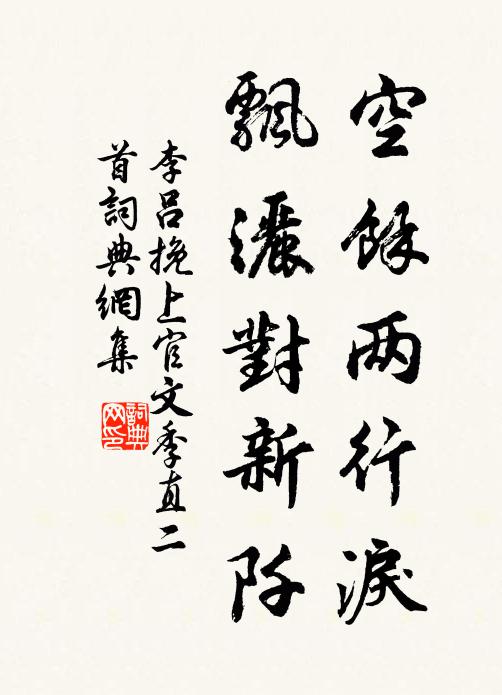 空餘两行淚
飄灑對新阡
李呂挽上官文季直二
首詞典網集
詞典网印